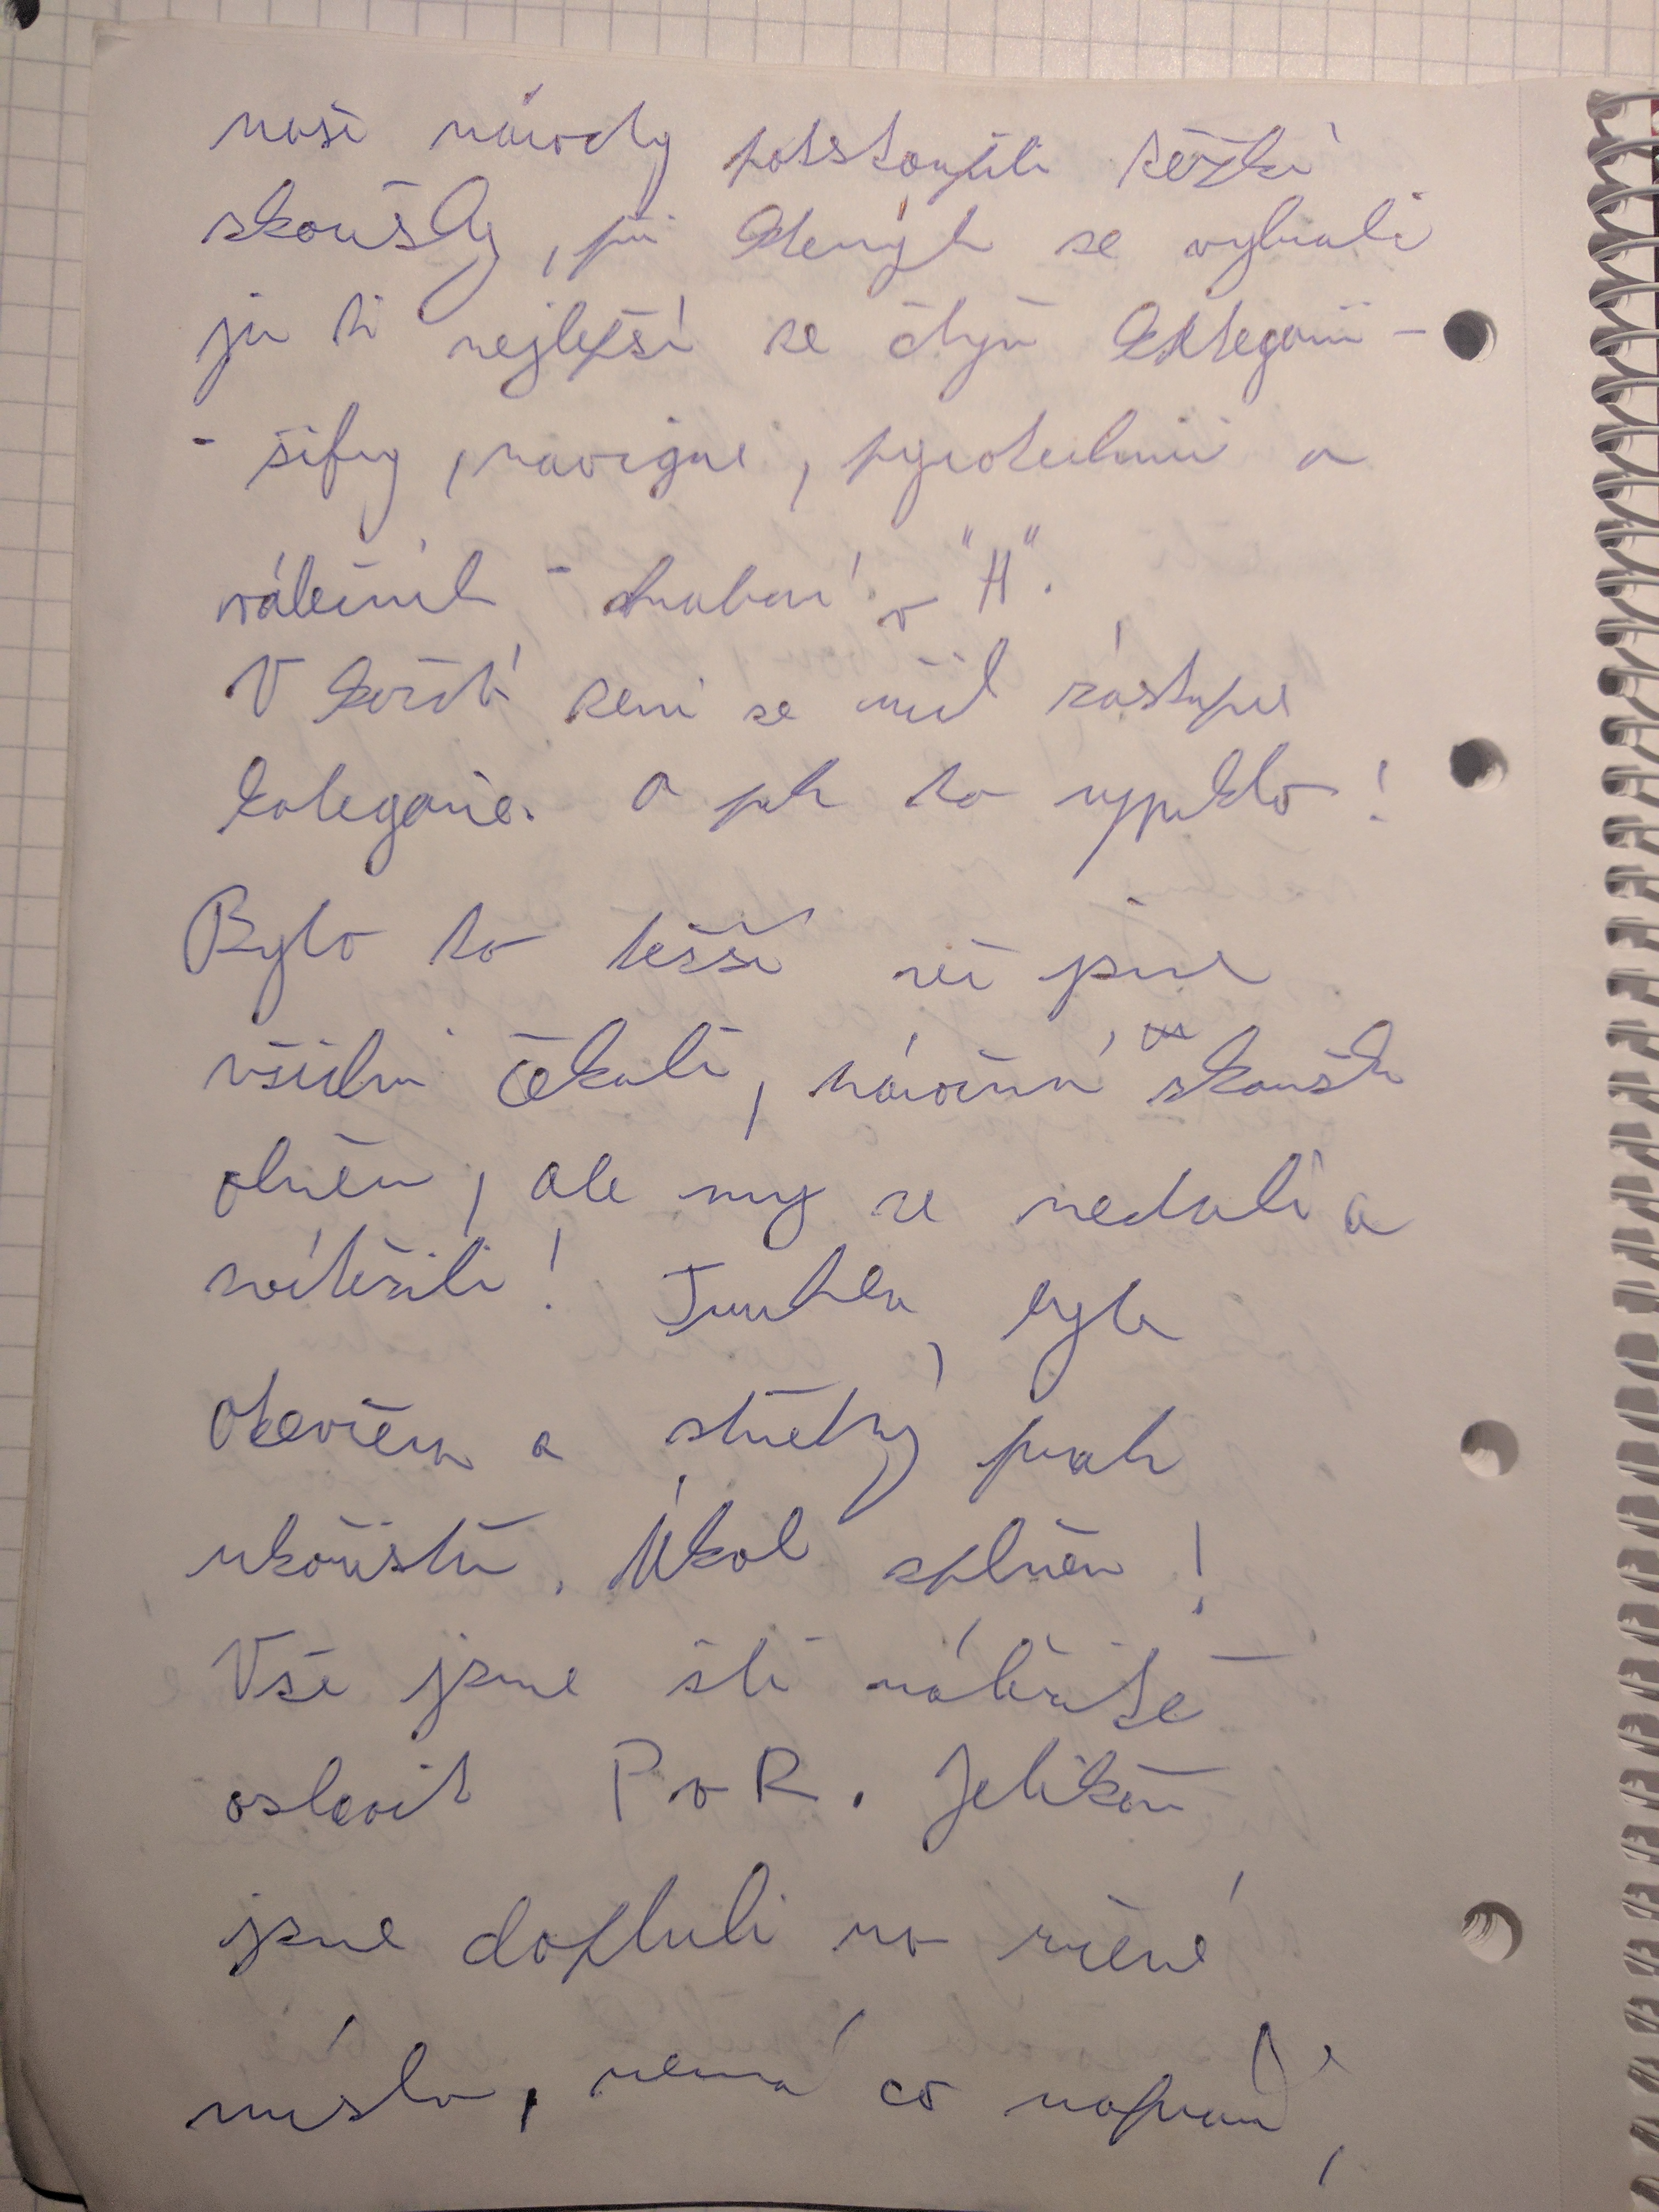 naši národy podstoupili těžké
skoušky, při kterých se vybrali
jen ti nejlepší ze čtyř kategorií -
- šifry, navigace, pyrotechnici a
válečník - chabaní o "H".
V každé zemi se našel zástupce
kategorie. A pak to vypuklo!
Bylo to těžší než jsme
všichni čekali, náročná skouška
ohněm, ale my se nedali a
zvítězili! Truhla byla
otevřena a střelný prach
ukořistěn. Úkol splněn!
Vše jsme šli náležitě
oslavit P v R. Jelikož
jsme dopluli na určené
místo, nemá co napravit,